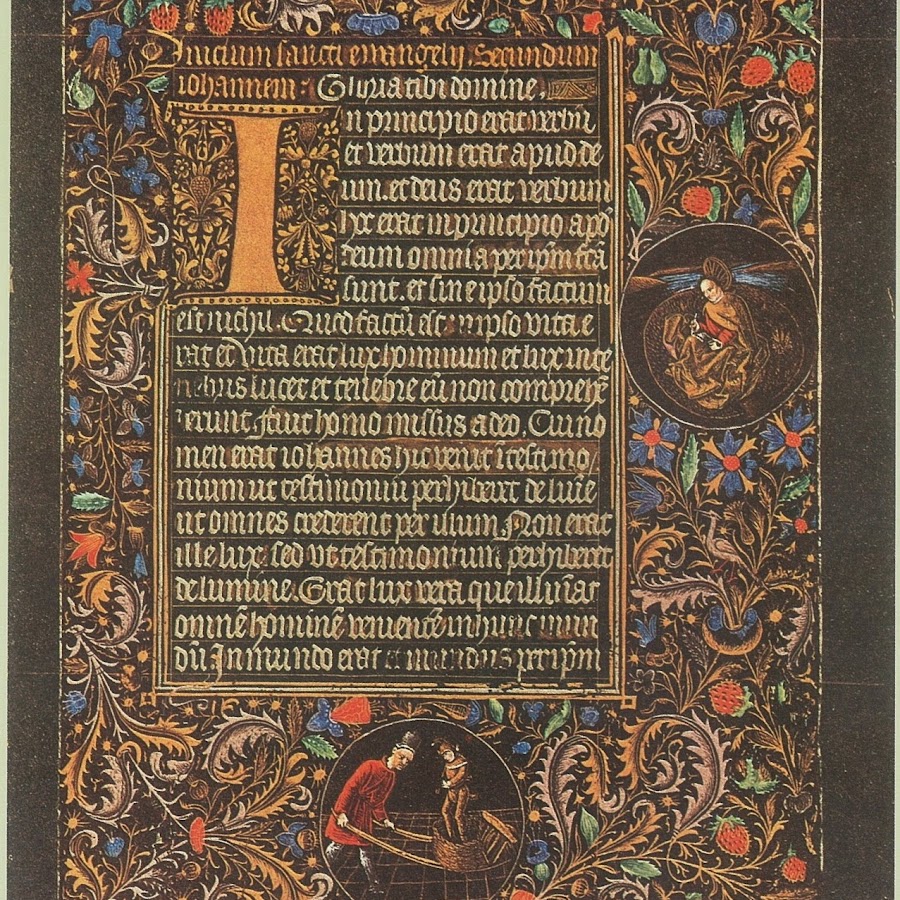 Inicium sancti evangelij. Secundum
iohannem. Gloria tibi domine.
In principio erat verbu
et verbum erat apud de
um. et deus erat verbum
hoc erat in principio apd
deum omnia per ipm fca
sunt. et sine ipso factum
est nichil. Quod factu est in ipso vita e
rat et vita erat lux hominum et lux in te
nebris lucet et tenebre eu non comprehe
derunt. fuit homo missus a deo. Cui no
men erat iohannes hic venit i testimo
nium ut testimoniu perhiberet de lumine
ut omnes crederent per illum. Non erat
ille lux. sed ut testimonium perhiberet
de lumine. Erat lux vera que illuiat
omne homine veniente in hunc mun
du In mundo erat et mundus per ipm